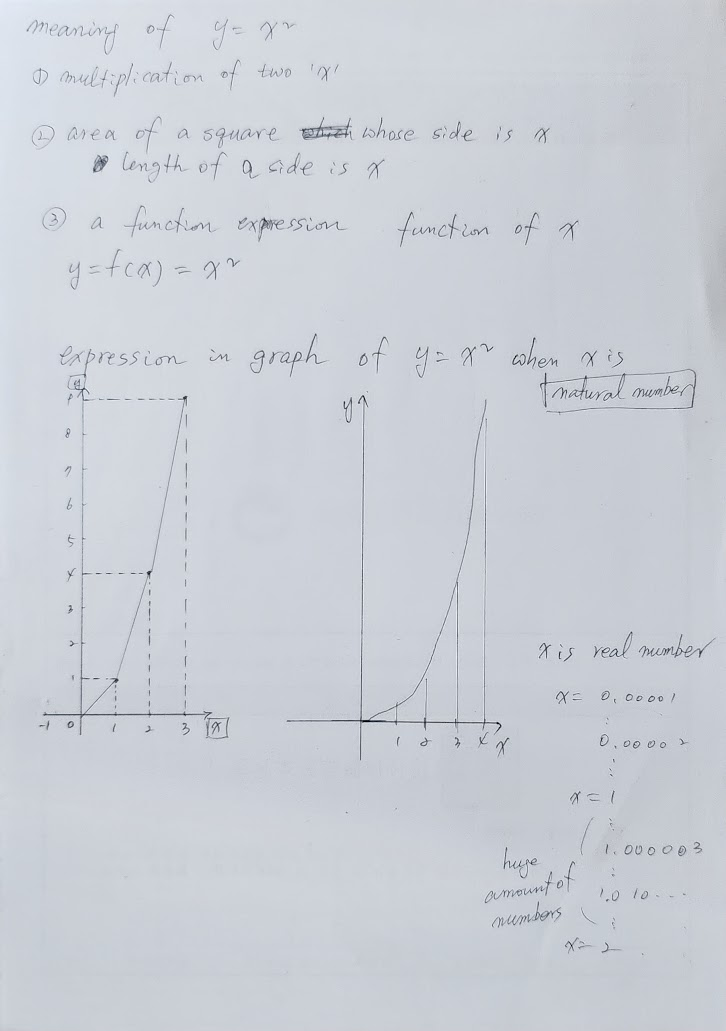 meaning of y = x²
① multiplication of two 'x'
② area of a square which whose side is x
length of a side is x
③ a function expression function of x
y = f(x) = x²
expression in graph of y = x² when x is
natural number
y
9
8
7
6
5
4
3
2
1
-1 0 1 2 3 x
y
1 2 3 4 x
x is real number
x = 0.00001
⋮
0.00002
⋮
x = 1
⋮
1.000003
⋮
huge
amount of
numbers
1.010...
⋮
x = 2